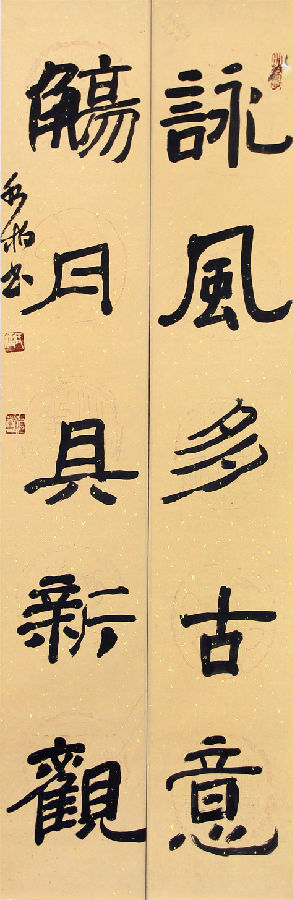 詠風多古意
觴月具新觀